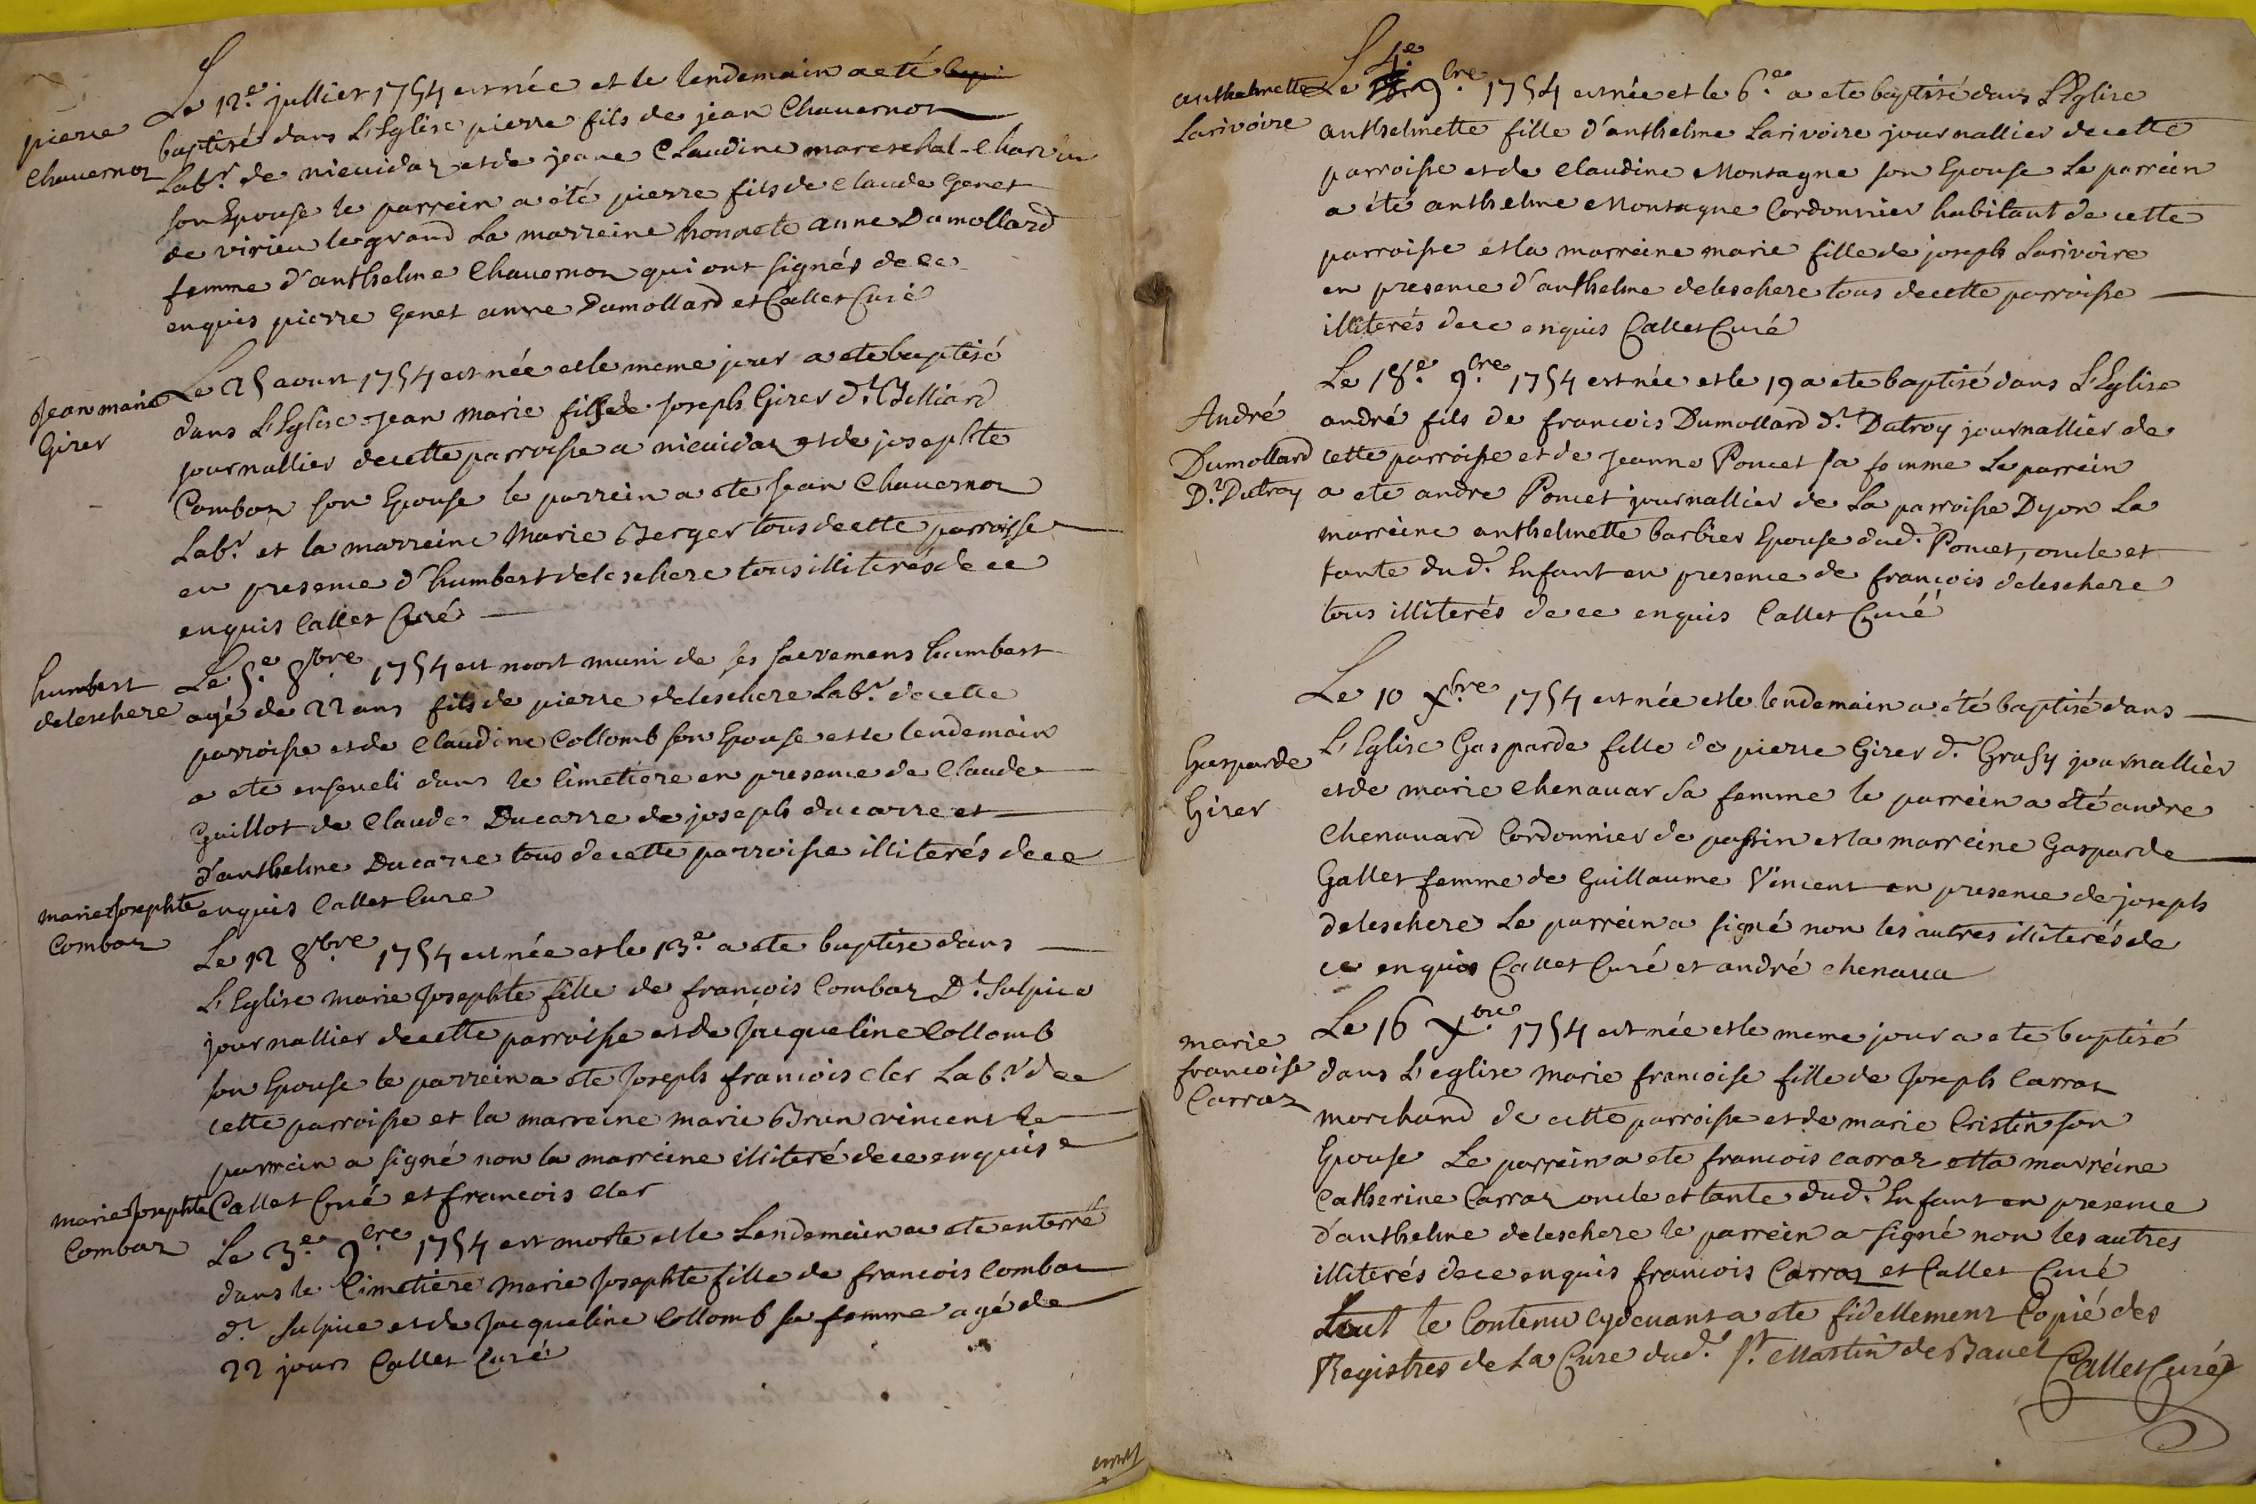 pierre
chavernoz
Le 12e jullier 1754 est née et le lendemain a eté
baptisé dans L'Eglise pierre fils de jean Chavernoz
Labr. de nieuidaz et de jeane Claudine mareschal-Charvin
son Epouse le parrein a été pierre fils de Claude Genet
de virieu le grand La marreine honnete anne Dumollard
femme d'anthelme Chavernoz qui ont signés de ce
enquis pierre Genet anne Dumollard et Callet Curé
Jean marie
Girer
Le 25 aoust 1754 est née et le meme jour a ete baptisé
dans L'Eglise Jean marie fils de Joseph Girer dt. Billiard
journallier de cette parroisse a nieuidaz et de josephte
Combaz son Epouse le parrein a ete Jean Chavernoz
Labr. et la marreine Marie Berger tous de cette parroisse
en presence d'humbert deleschere tous illiterés de ce
enquis Callet Curé
humbert
deleschere
Le 5e. 8bre 1754 est mort muni de ses sacremens humbert
agé de 22 ans fils de pierre deleschere Labr. de cette
parroisse et de Claudine Collomb son Epouse et le lendemain
a ete enseveli dans le Cimetiere en presence de Claude
Guillot de Claude Ducarre de joseph ducarre et
d'anthelme Ducarre tous de cette parroisse illiterés de ce
enquis Callet Cure
marie Josephte
Combaz
Le 12 8bre 1754 est née et le 13e a ete baptise dans
L'Eglise marie Josephte fille de francois Combaz Dt. Sulpice
journallier de cette parroisse et de Jacqueline Collomb
son Epouse le parrein a ete Joseph francois cler Labr. de
cette parroisse et la marreine marie Brun vincent le
parrein a signé non la marreine illiteré de ce enquise
Callet Curé et francois cler
marie Josephte
Combaz
Le 3e. 9bre 1754 est morte et le Lendemain a ete enterré
dans le Cimetiere Marie Josephte fille de francois Combaz
dt Sulpice et de Jacqueline Collomb sa femme agé de
22 jours Callet Curé
anthelmette
Larivoire
Le 4e 9bre. 1754 est née et le 6e. a ete baptisé dans L'Eglise
anthelmette fille d'anthelme Larivoire journallier de cette
parroisse et de Claudine Montagne son Epouse Le parrein
a été anthelme Montagne Cordonnier habitant de cette
parroisse et la marreine marie fille de joseph Larivoire
en presence d'anthelme deleschere tous de cette parroisse
illiterés de ce enquis Callet Curé
André
Dumollard
Dt. Dutroy
Le 18e. 9bre. 1754 est née et le 19 a ete baptisé dans L'Eglise
andré fils de francois Dumollard dt. Dutroy journallier de
cette parroisse et de Jeanne Poncet sa femme Le parrein
a ete andre Poncet journallier de La parroisse Dyon La
marreine anthelmette barbier Epouse dud. Poncet, oncle et
tante dud. Enfant en presence de françois deleschere
tous illiterés de ce enquis Callet Curé
Gasparde
Girer
Le 10 Xbre 1754 est née et le lendemain a été baptisé dans
L'Eglise Gasparde fille de pierre Girer dt. Grusy journallier
et de marie chenavar Sa femme le parrein a été andre
Chenavard Cordonnier de passin et la marreine Gasparde
Gallet femme de Guillaume Vincent en presence de joseph
deleschere Le parrein a signé non les autres illiterés de
ce enquis Callet Curé et andré chenava
marie
francoise
Carraz
Le 16 Xbre 1754 est née et le meme jour a ete baptisé
dans L'eglise Marie francoise fille de Joseph Carraz
marchand de cette parroisse et de marie Cristin son
Epouse Le parrein a ete francois carraz et la marréine
Catherine Carraz oncle et tante dud. Enfant en presence
d'anthelme deleschere le parrein a signé non les autres
illiterés de ce enquis francois Carraz et Callet Curé
Tout le Contenu cydevant a ete fidellement Copié des
Registres de La Cure dud. St. Martin de Bavel Callet Curé